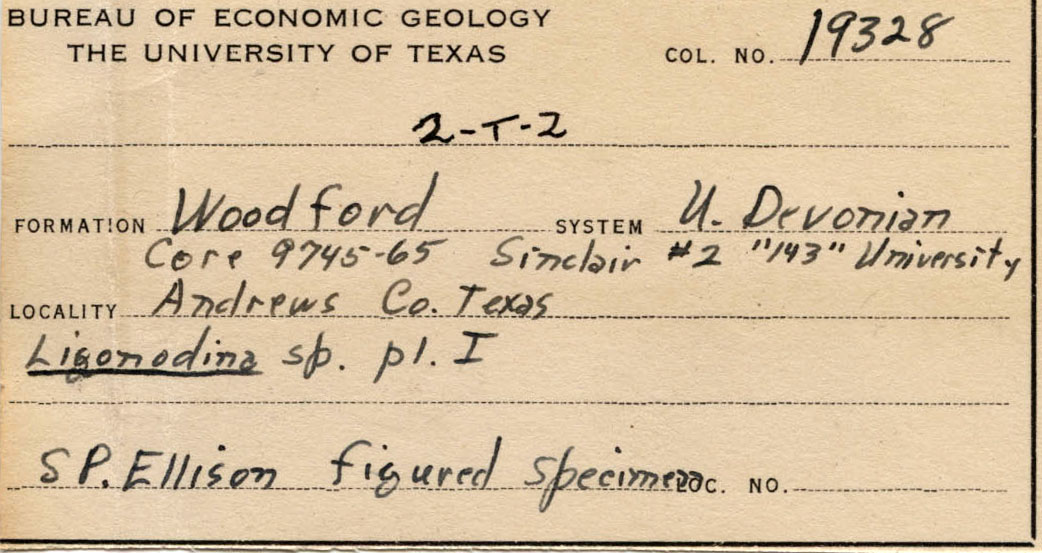 BUREAU OF ECONOMIC GEOLOGY
THE UNIVERSITY OF TEXAS
COL. NO. 19328
2-T-2
FORMATION Woodford SYSTEM U. Devonian
Core 9745-65 Sinclair #2 "143" University
LOCALITY Andrews Co. Texas
Ligonodina sp. pl. I
S P. Ellison figured specimen LOC. NO.